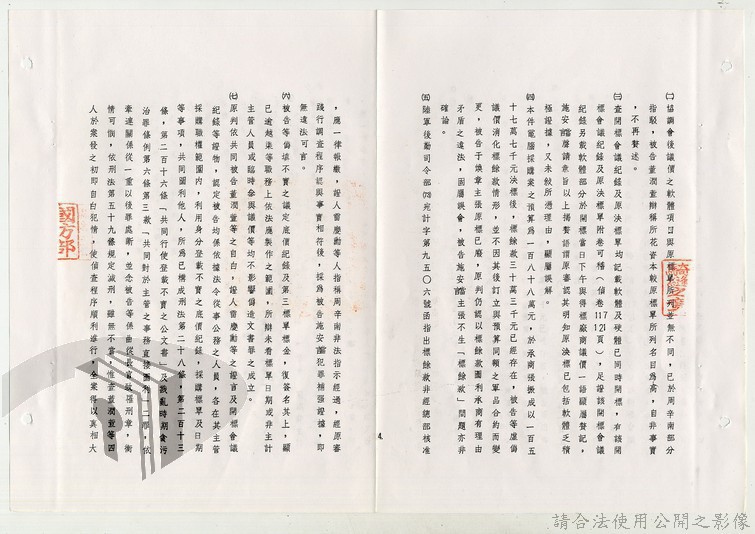 ㈡協調會後議價之軟體項目與原標單所列並無不同，已於周辛南部分
指駁，被告董潤萱辯稱所花資本較原標單所列名目為高，自非事實
，不再贅述。
㈢查開標會議紀錄及原決標單均記載軟體及硬體已同時開標，有該開
標會議紀錄及原決標單附卷可稽（偵卷1121頁），足證該開標會議
紀錄另載軟體部分於開標當日下午與得標廠商議價一語顯屬登記，
施安當層請求旨以上揭贅語謂原審認其明知原決標已包括軟體乏積
極證據，又未敘所憑理由，顯屬誤解。
㈣本件電腦採購案之預算為一百八十八萬元，於承商張微成以一百五
十七萬七千元決標後，標餘款三十萬三千元已經存在，被告等虛偽
議價消化標餘款情形，並不因其後訂立與預算同額之軍品合約而變
更，被告于煥章主張原標已廢，原判仍認以標餘款圖利承商有理由
矛盾之違法，固屬誤會，被告施安當主張不生「標餘款」問題亦非
確論。
㈤陸軍後勤司令部㈣宛計字第九五〇六號函指出標餘款非經總部核准
，應一律報繳，證人留慶勳等人指稱周辛南非法指示經過，經原審
踐行調查程序認與事實相符後，採為被告施安當犯罪補強證據，即
無違法可言。
㈥被告等偽填不實之議定底價紀錄及第三標單標金，復簽名其上，顯
已逾越渠等職務上依法應製作之範圍，所辯未看標單日期或非主計
主管人員或臨時參與議價等均不影響偽造文書罪之成立。
㈦原判依共同被告董潤萱等之自白，證人留慶勳等之證言及開標會議
紀錄等證物，認定被告均係依據法令從事公務之人員，各在其主管
採購職權範圍內，利用身分登載不實之底價紀錄，採購標單及日期
等事項，共同圖利他人，所為已構成刑法第二十八條，第二百十三
條，第二百十六條「共同行使登載不實之公文書」及戡亂時期貪污
治罪條例第六條第三款「共同對於主管之事務直接圖利」二罪，依
牽連關係從一重以後罪處斷，並念被告等係曲從長官致罹刑章，衡
情可憫，依刑法第五十九條規定減刑，雖無不當，惟查董潤萱等四
人於案發之初即自白犯情，使偵查程序順利進行，全案得以真相大
4.
國防部
請合法使用公開之影像